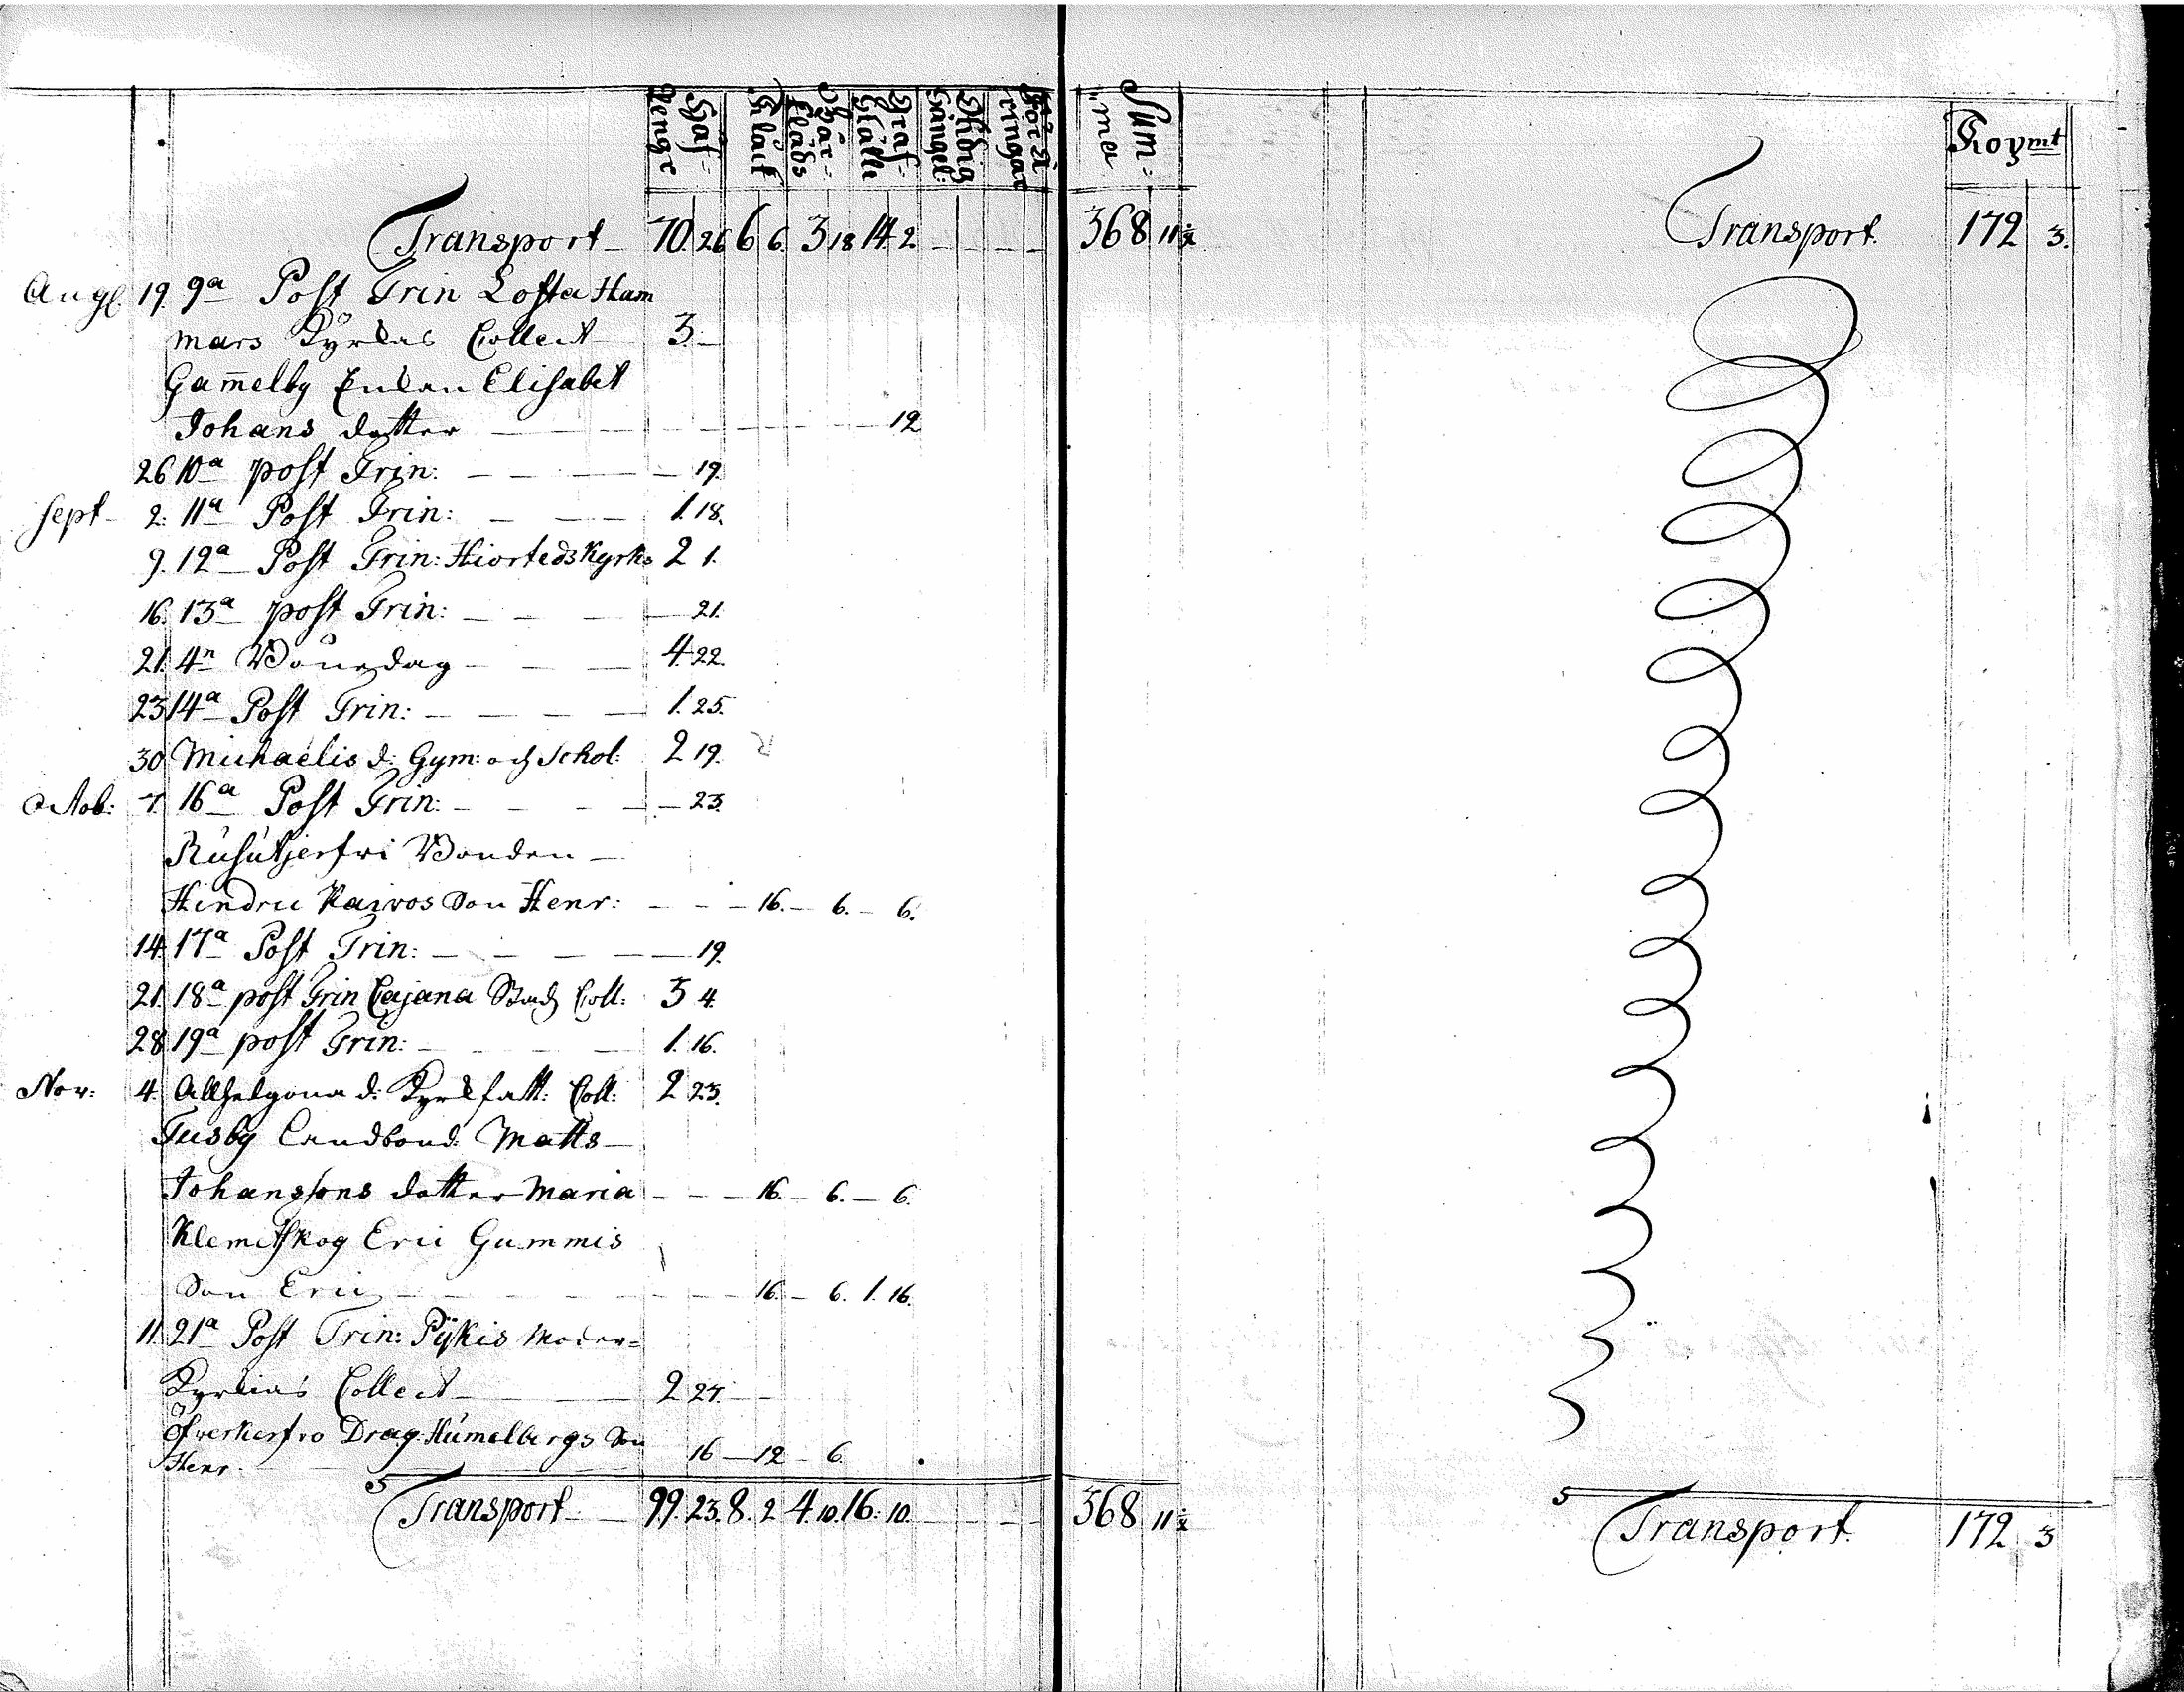 Håf= Pengr
Klåck
Bår= Kläds
Graf= Ställe
Ödig Gångel:
Förä ringar
Sum= "ma
Koymt
Transport — 70. 26 6 6. 3 18 14. 2. — — — — 368 11½
Transport. 172 3.
Augt. 19. 9a Post Trin Lofta Ham
mars Kyrkas Collect 3. —
Gam̄elby Enkan Elisabet
Johans dotter — — — 12
26 10a post Trin: — — — 19.
Sept — 2. 11a Post Trin: — — — 1. 18.
9. 12a Post Trin: Hiorteds Kyrko 2 1.
16. 13a post Trin: — — — 21.
21. 4n Bönedag — — — 4. 22.
23 14a Post Trin: — — — 1. 25.
30 Michaelis d: Gym: och Schol: 2 19.
Octob: 7. 16a Post Trin: — — — 23.
Rusutjerfvi Bonden —
Hindric Kaivos Son Henr: — — — 16. — 6. — 6.
14. 17a Post Trin: — — — 19.
21. 18a post Trin Cajana Stads Coll: 3 4.
28 19a post Trin: — — — 1. 16.
Nov: 4. Allhelgona d: Kyrkfatt: Coll: 2 23.
Tusby Landbond. Matts —
Johanssons dotter Maria — — — 16. — 6. — 6.
Klemetskog Eric Gummis
Son Eric — — — 16. — 6. 1. 16.
11. 21a Post Trin: Pÿkis Moder=
Kyrkias Collect — 2 27. —
Öfverkerfvo Drag: Humelbergs Son
Henr. — 16 — 12 — 6.
Transport — 99. 23. 8. 2 4. 10. 16. 10. — — — — 368 11½
Transport. 172 3